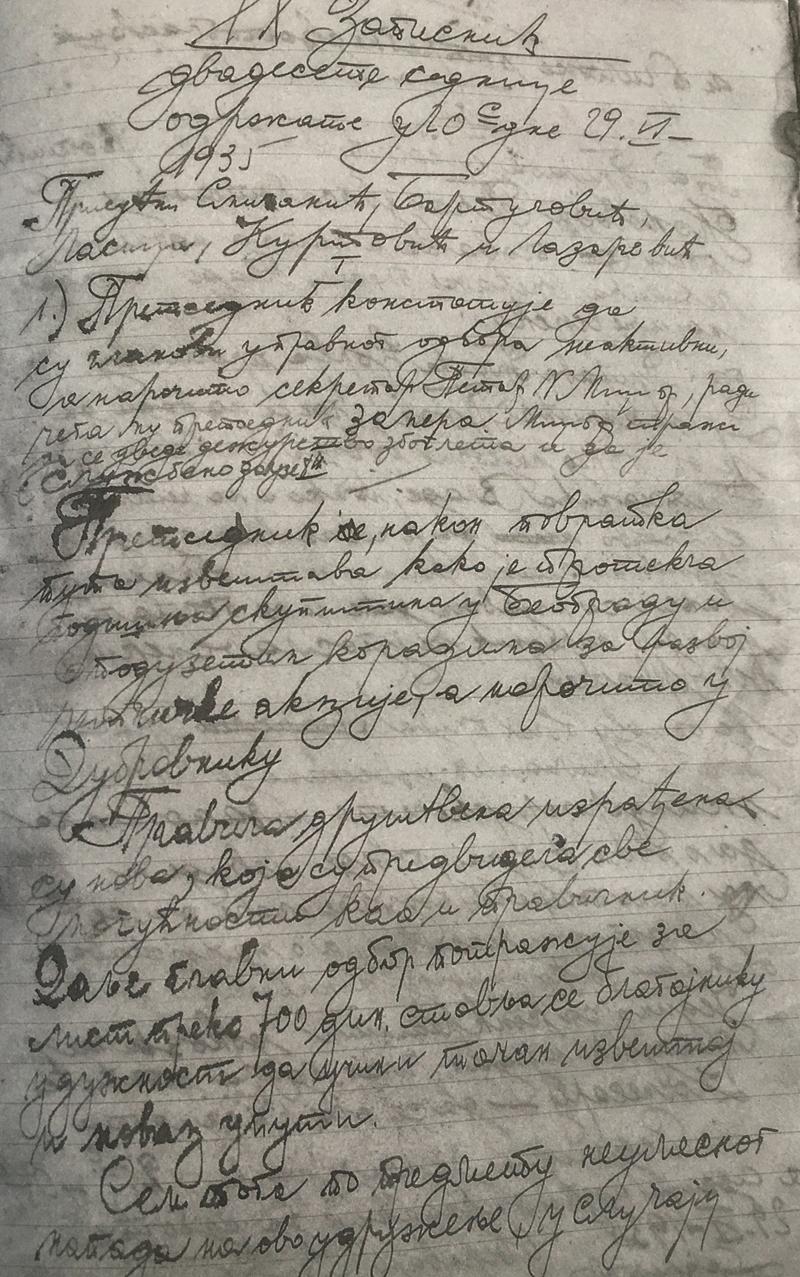 XX Записник
двадесете седнице
одржате у 10 дне 29. VI
1935
Присутни Бартуловић,
Ласица, Куртовић и Лазаревић.
1.) Претседник констатује да
су чланови управног одбора неактивни,
а нарочито секретар Петар N. ради
чега му претседник замера. тражи
да се дежурство због лета и да је
службено заузет
Претседник је, након повратка
пута извештава како је протекла
годишња скупштина у Београду и
о подузетим корацима за развој
акције, а нарочито у
Дубровнику
Правила друштвена израђена
су нова, која су предвидела све
могућности као и правилник.
Даље главни одбор потражује за
лист преко 700 дин. ставља се благајнику
у дужност да учини точан извештај
и новац упути.
Сем тога по предмету неумесног
напада на ово удружење, у случају